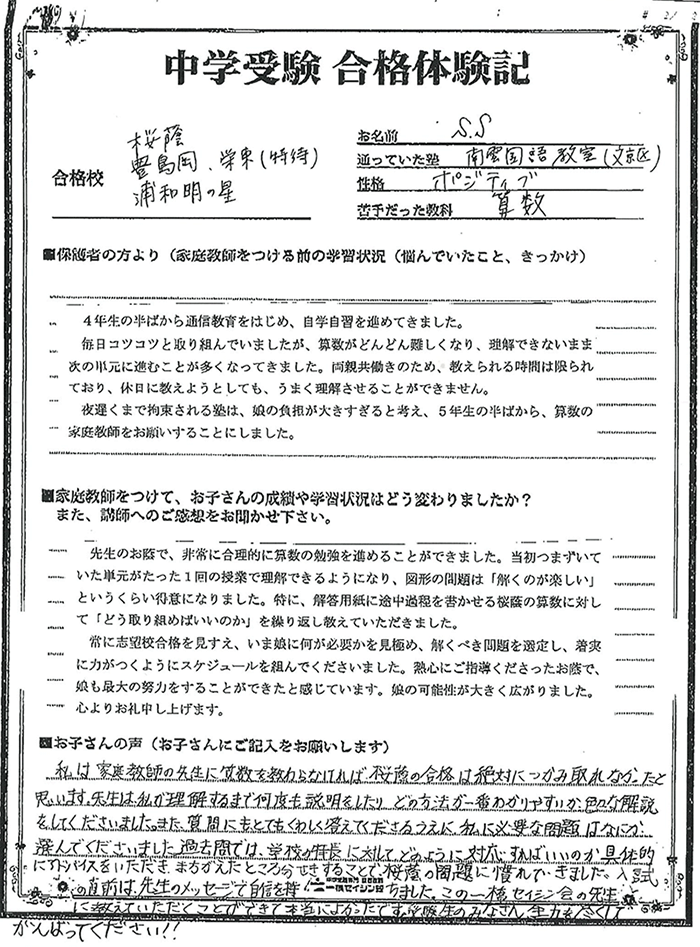 中学受験 合格体験記
合格校
桜蔭
豊島岡、栄東(特待)
浦和明の星
お名前 S.S
通っていた塾 南雲国語教室(文京区)
性格 ポジティブ
苦手だった教科 算数
■保護者の方より(家庭教師をつける前の学習状況(悩んでいたこと、きっかけ)
4年生の半ばから通信教育をはじめ、自学自習を進めてきました。
毎日コツコツと取り組んでいましたが、算数がどんどん難しくなり、理解できないまま
次の単元に進むことが多くなってきました。両親共働きのため、教えられる時間は限られ
ており、休日に教えようとしても、うまく理解させることができません。
夜遅くまで拘束される塾は、娘の負担が大きすぎると考え、5年生の半ばから、算数の
家庭教師をお願いすることにしました。
■家庭教師をつけて、お子さんの成績や学習状況はどう変わりましたか?
また、講師へのご感想をお聞かせ下さい。
先生のお蔭で、非常に合理的に算数の勉強を進めることができました。当初つまずいて
いた単元がたった1回の授業で理解できるようになり、図形の問題は「解くのが楽しい」
というくらい得意になりました。特に、解答用紙に途中過程を書かせる桜蔭の算数に対し
て「どう取り組めばいいのか」を繰り返し教えていただきました。
常に志望校合格を見すえ、いま娘に何が必要かを見極め、解くべき問題を選定し、着実
に力がつくようにスケジュールを組んでくださいました。熱心にご指導くださったお蔭で、
娘も最大の努力をすることができたと感じています。娘の可能性が大きく広がりました。
心よりお礼申し上げます。
■お子さんの声(お子さんにご記入をお願いします)
私は家庭教師の先生に算数を教わらなければ桜蔭の合格は絶対につかみ取れなかったと
思います。先生は私が理解するまで何度も説明をしたり、どの方法が一番わかりやすいか色々な解説
をしてくださいました。また、質問にもとてもくわしく答えてくださるうえに、私に必要な問題はなにか、
選んでくださいました。過去問では、学校の特長に対してどのように対応すればいいのか具体的
にアドバイスをいただき、まちがえたところ分せきすることで桜蔭の問題に慣れていきました。入試
の直前は、先生のメッセージで自信を持 ちました。この一橋セイシン会の先生
一橋セイシン会
に教えていただくことができて本当によかったです。受験生のみなさん、全力をつくして
がんばってください!!